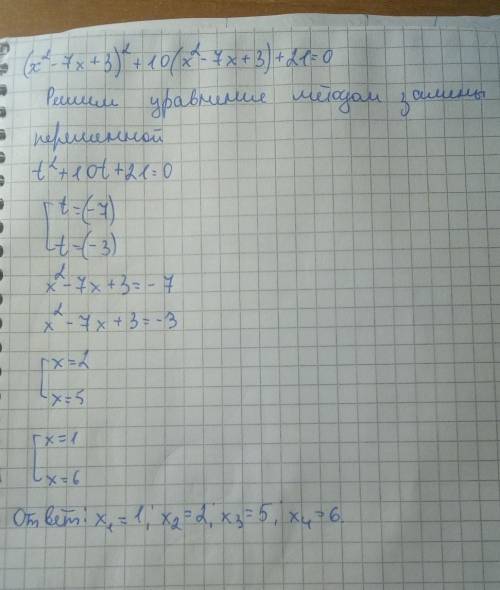 (x²-7x+3)²+10(x²-7x+3)+21=0
Решим уравнение методом замены
переменной
t²+10t+21=0
[t=(-7)
[t=(-3)
x²-7x+3=-7
x²-7x+3=-3
[x=2
[x=5
[x=1
[x=6
Ответ: x₁=1; x₂=2; x₃=5; x₄=6.